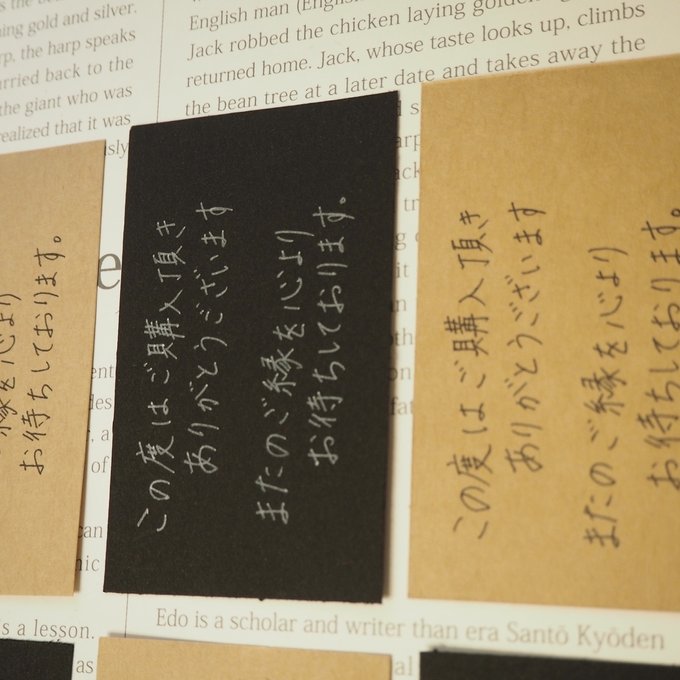 s the be
ning gold and silver.
rp, the harp speaks
urried back to the
the giant who was
realized that it was
sly
English man (Englis
Jack robbed the chicken laying golden
returned home. Jack, whose taste looks up, climbs
the bean tree at a later date and takes away the
お待ちしております。
この度はご購入頂き
ありがとうございます
またのご縁を心より
お待ちしております。
この度はご購入頂き
ありがとうございます
またのご縁を心より
お待ちしております。
s a lesson.
as
Edo is a scholar and writer than era Santō Kyōden
al